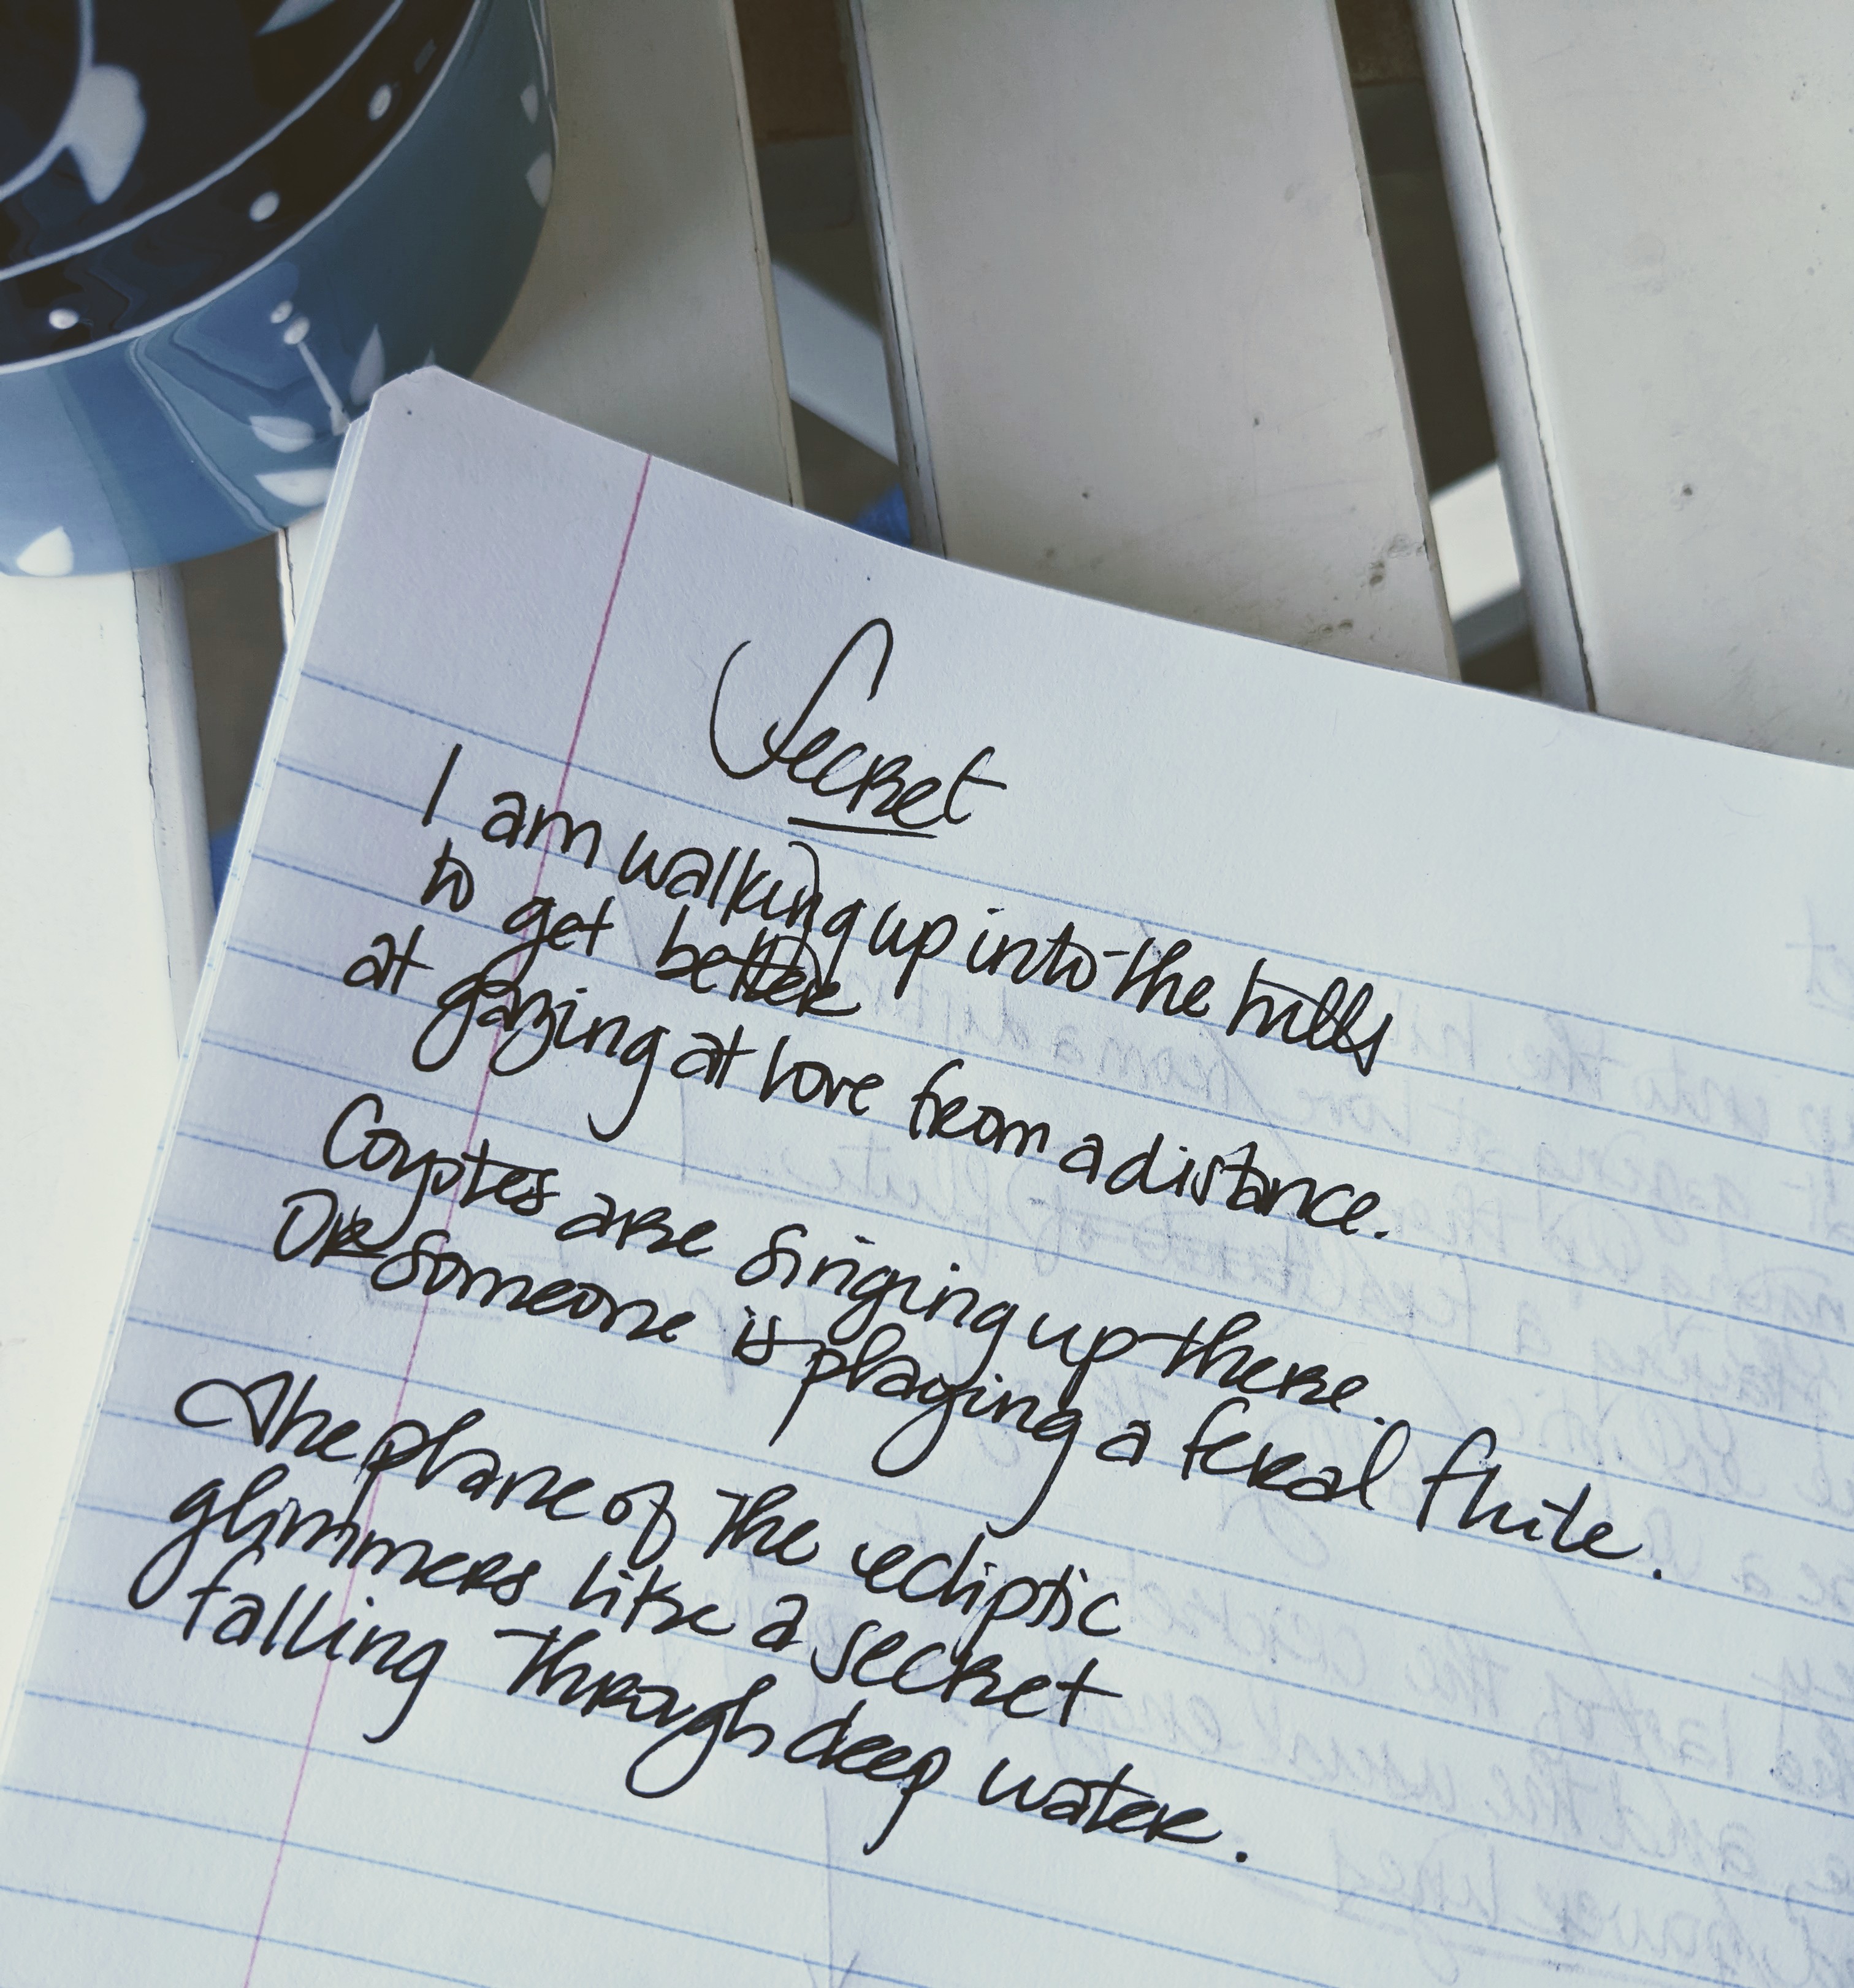 Secret
I am walking up into the hills
to get better
at gazing at love from a distance.
Coyotes are singing up there.
Or someone is playing a feral flute.
The plane of the ecliptic
glimmers like a secret
falling through deep water.